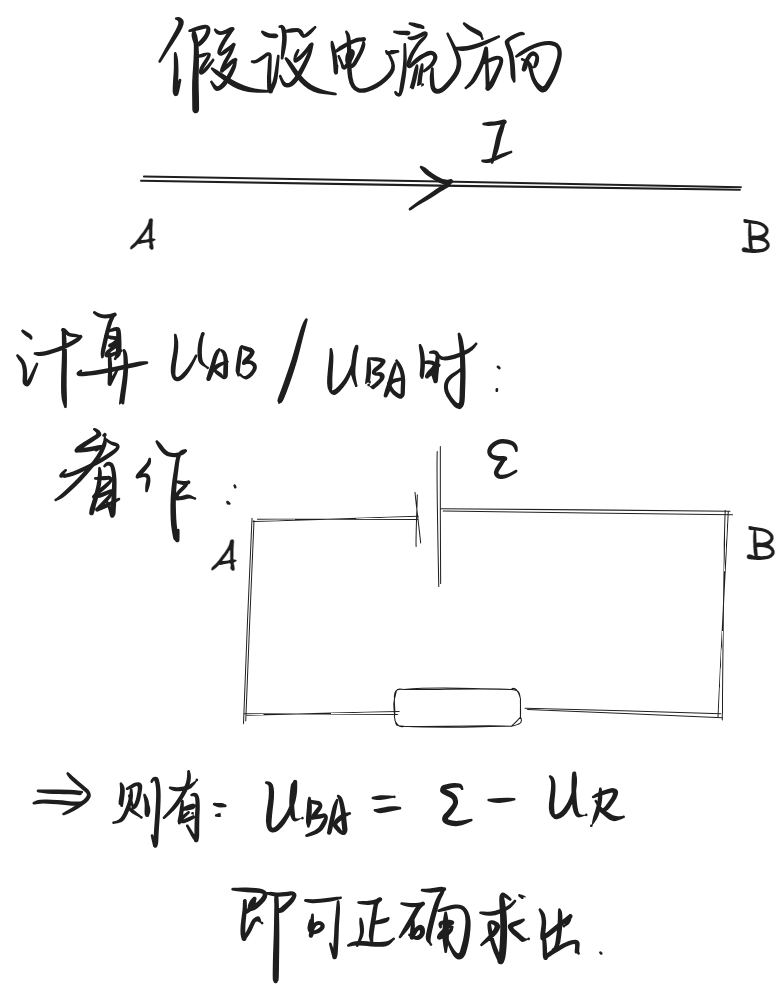 假设电流方向
I
A
B
计算 UAB / UBA时:
看作:
ε
A
B
⇒ 则有: UBA = ε - UR
即可正确求出.